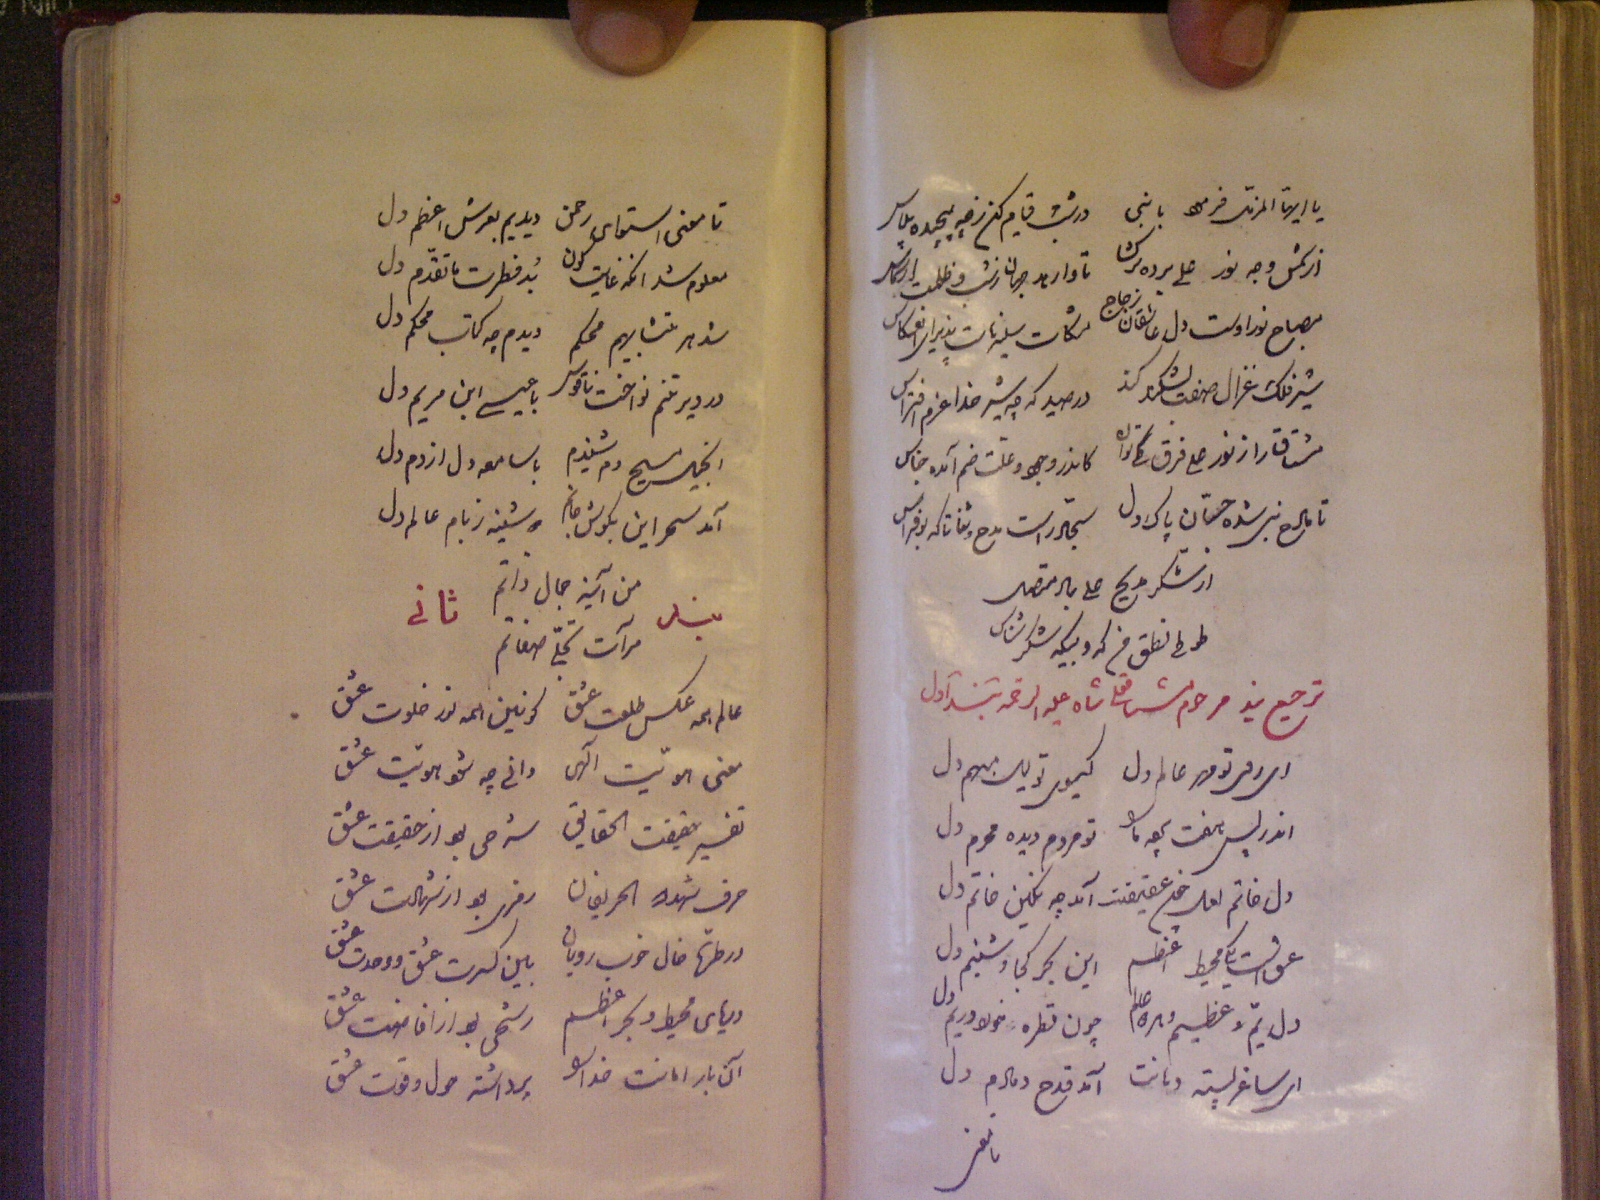 یا ایها المزمل فرمود با نبی در شب قیام کن ز چه پیچیده پلاس
از شمس وجه نور علی پرده برگشا تا وارهد جهان ز شب و ظلمت
مصباح نور اوست دل عاشقان زجاج مشکات سینه پذیرای انعکاس
شیر فلک غزال صفت کند در صید که چه شیر خدا عزم افتراس
مشتاق را ز نور علی فرق کی توان
تا مادح نبی شده حسان پاک دل مدح و ثنا تا که بوفراس
از شکر مدیح علی
طوطی نطق من که شکرشناس
ترجیع بند مرحوم مشتاقعلی شاه علیه الرحمه بند اول
ای روی تو مهر عالم دل گیسوی تو لیل مبهم دل
اندر پس هفت پرده ما را تو مردم دیده محرم دل
دل خاتم لعل آمد چه نگین خاتم دل
عشق است یکی محیط اعظم این بحر کجا و شبنم دل
دل یم عظیم و هر دو عالم چون قطره دریم دل
ای ساغر بسته دهانت آمد قدح دمادم دل
تا معنی
تا معنی استوای رحمن دیدیم بعرش اعظم دل
معلوم شد آنکه غایت کون بد فطرت ما تقدم دل
شد هر متشابهم محکم دیدم چه کتاب محکم دل
در دیر تنم نواخت ناقوس با عیسی ابن مریم دل
انجیل مسیح دم شنیدم با سامعه دل از دم دل
آمد سحر این بگوش جانم دوشینه ز بام عالم دل
من آینه جمال ذاتم
بند ثانی
مرآت تجلی صفاتم
عالم همه عکس طلعت عشق کونین همه نور خلوت عشق
معنی هویت الهی دانی چه بود هویت عشق
تفسیر حقیقت الحقایق شرحی بود از حقیقت عشق
حرف شهدا رمزی بود از شهادت عشق
در طره و خال خوبرویان بین کثرت عشق و وحدت عشق
دریای محیط و بحر اعظم رشحی بود از افاضت عشق
آن بار امانت خدا را برداشته حول و قوت عشق